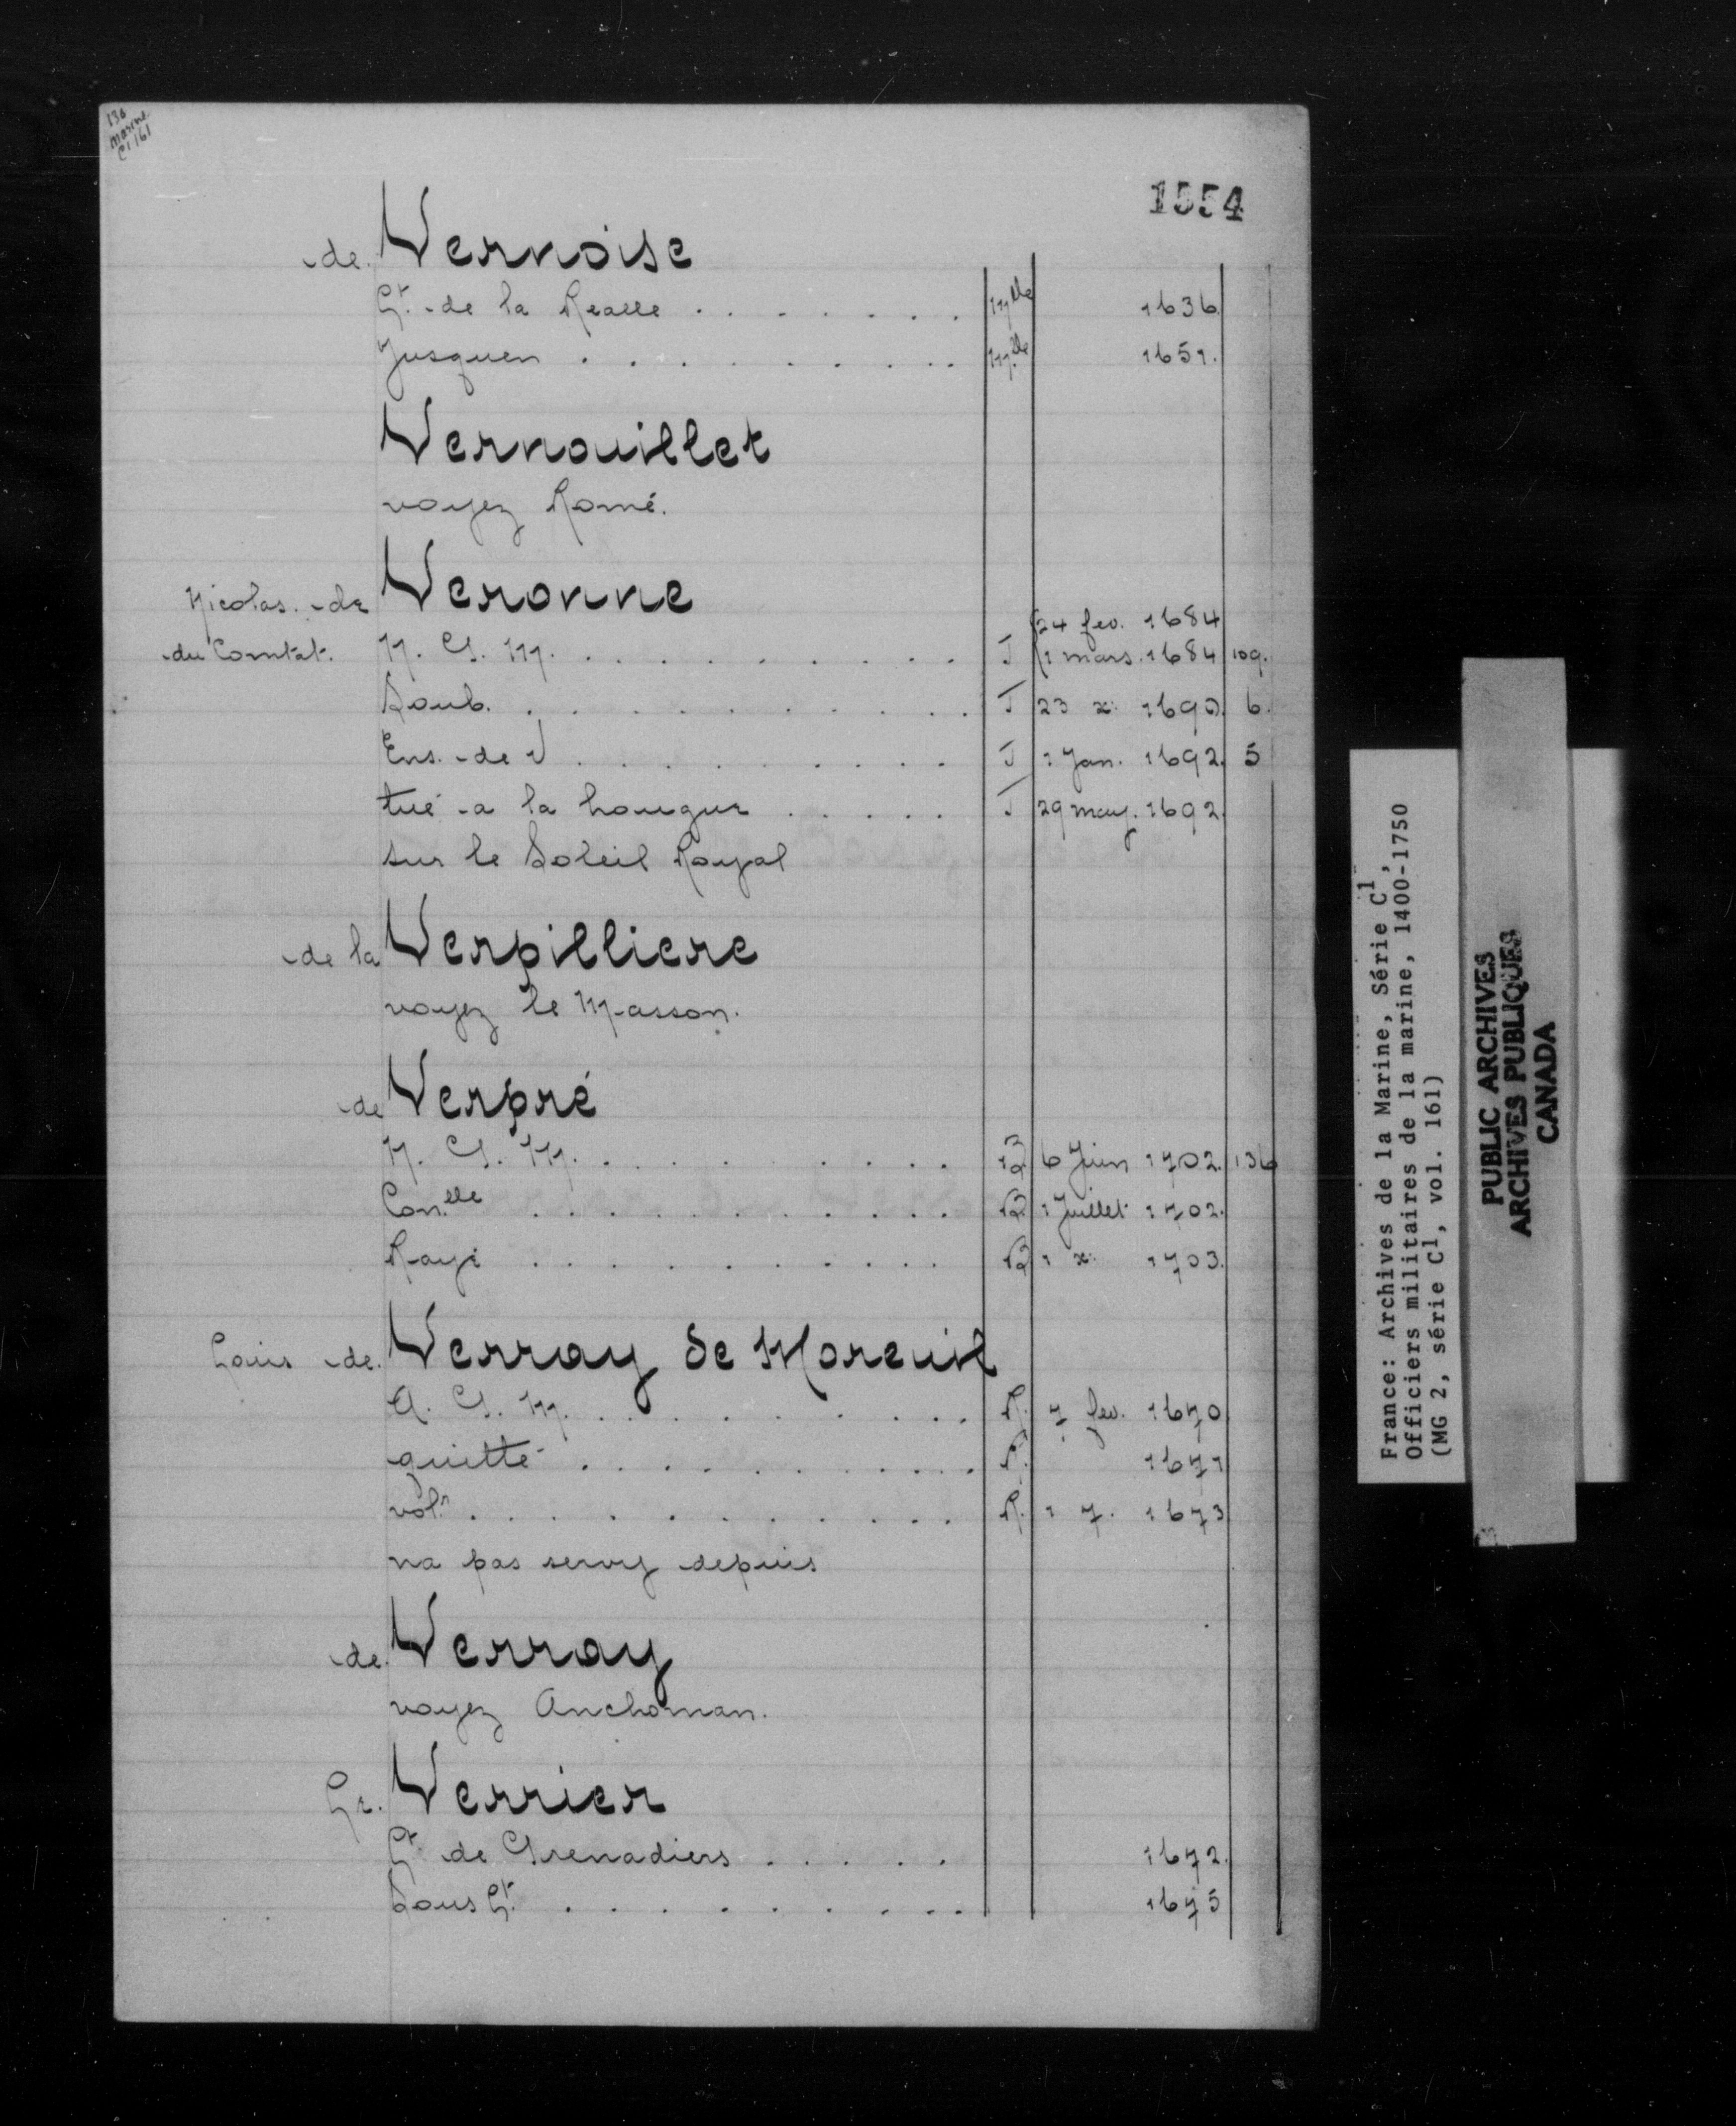 136
Marine
C1 161
1554
de Vernoise
Lt. de la Realle . . . . . . . Mlle 1636
Jusquen . . . . . . . . . Mlle 1651.
Vernouillet
voyez Romé.
Nicolas de Veronne
24 fev. 1684
du Comtat. N. G. M. . . . . . . . . . T 1 mars. 1684 109.
Soub. . . . . . . . . . . T 23 x: 1690. 6.
Ens. de V . . . . . . . . . T 1 Jan. 1692. 5
tué a la hougue . . . . . T 29 may. 1692.
sur le Soleil Royal
de la Verpilliere
voyez le Masson.
de Verpré
N. G. M. . . . . . . . . . B 6 Juin 1702. 136
Conlle . . . . . . . . . . B 1 Juillet 1702.
Rayé . . . . . . . . . . B 1 x: 1703.
Louis de Verray de Moreuil
A. G. M. . . . . . . . . . R. 7 fev. 1670
quitté . . . . . . . . . . R. 1671
volre . . . . . . . . . . . R. 1 7. 1673
na pas servy depuis
de Verray
voyez Anchoman.
Le. Verrier
Lt de Grenadiers . . . . . 1672.
Sous Lt. . . . . . . . . . 1675
France: Archives de la Marine, Série C1,
Officiers militaires de la marine, 1400-1750
(MG 2, série C1, vol. 161)
PUBLIC ARCHIVES
ARCHIVES PUBLIQUES
CANADA